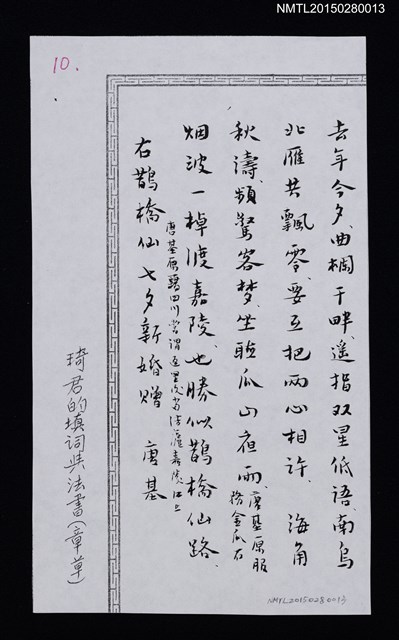 NMTL20150280013
10.
去年今夕、曲欄干畔、遙指双星低語、南烏
北雁共飄零、要互把兩心相許、海角
秋濤、頻驚客梦、坐聽瓜山夜雨、唐基原服
務金瓜石
烟波一棹渡嘉陵、也勝似鵲橋仙路、
唐基原籍四川常謂返里後當結廬嘉陵江上
右鵲橋仙七夕新婚贈 唐基
琦君的填詞與法書(章草)
NMTL20150280013